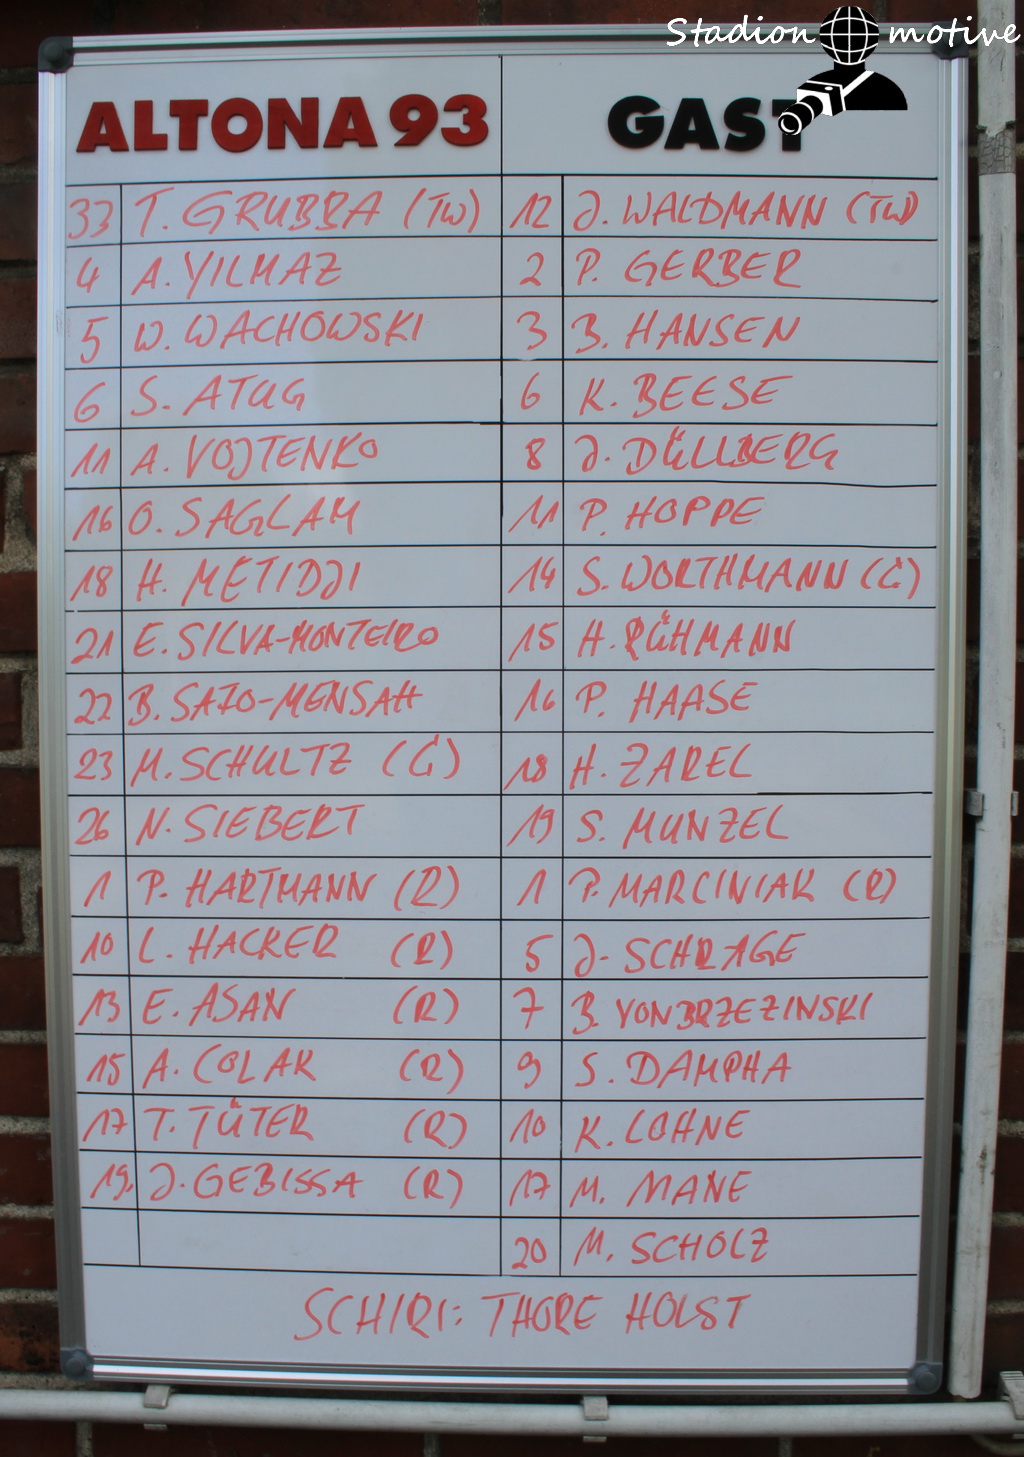 Stadion motive
ALTONA 93 GAST
33 T. GRUBBA (TW) 12 J. WALDMANN (TW)
4 A. YILMAZ 2 P. GERBER
5 W. WACHOWSKI 3 B. HANSEN
6 S. ATUG 6 K. BEESE
11 A. VOJTENKO 8 J. DÜLLBERG
16 O. SAGLAM 11 P. HOPPE
18 H. METIDJI 14 S. WORTHMANN (C)
21 E. SILVA-MONTEIRO 15 H. RÜHMANN
22 B. SAJO-MENSAH 16 P. HAASE
23 M. SCHULTZ (C) 18 H. ZAREL
26 N. SIEBERT 19 S. MUNZEL
1 P. HARTMANN (R) 1 P. MARCINIAK (R)
10 L. HACKER (R) 5 J. SCHRAGE
13 E. ASAN (R) 7 B. VON BRZEZINSKI
15 A. COLAK (R) 9 S. DAMPHA
17 T. TÜTER (R) 10 K. LOHNE
19. J. GEBISSA (R) 17 M. MANE
20 M. SCHOLZ
SCHIRI: THORE HOLST